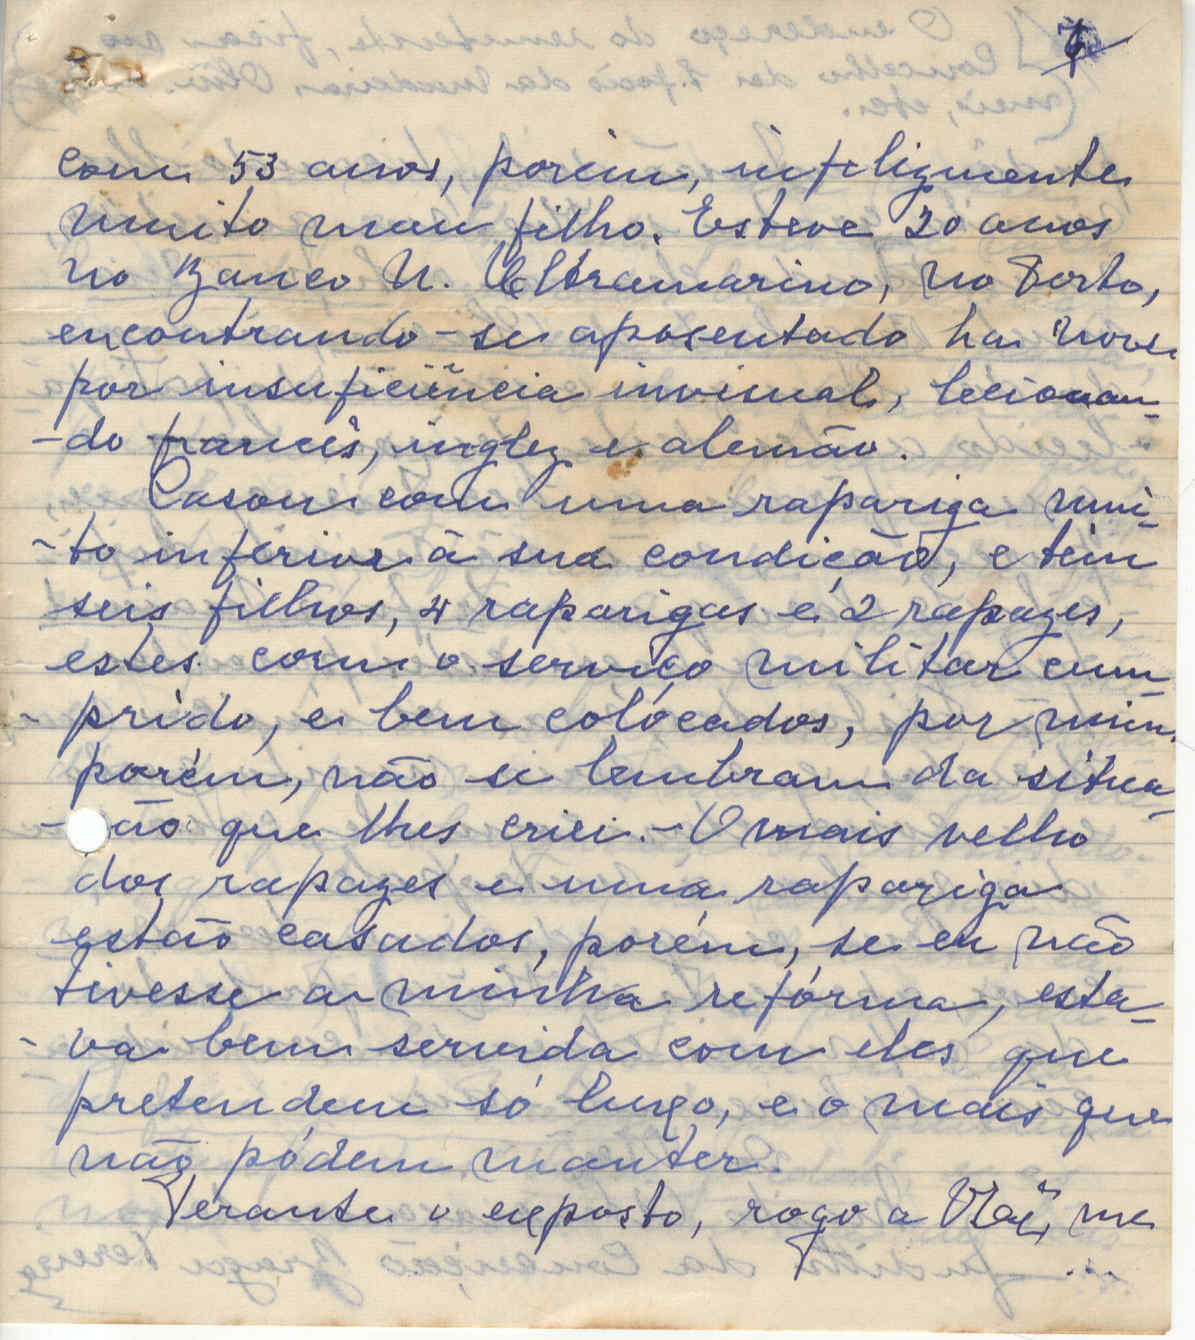 com 53 anos, porém, infelizmente
muito mau filho. Esteve 20 anos
no Banco N. Ultramarino, no Porto,
encontrando-se aposentado ha nove
por insuficiência invisual, lecionan-
-do francês, inglez e alemão.
Casou com uma rapariga mui-
-to inferior á sua condição, e tem
seis filhos, 4 raparigas e 2 rapazes,
estes com o serviço militar cum-
-prido, e bem colócados, por mim.
porém, não se lembram da situa-
-ão que lhes criei. - O mais velho
dos rapazes e uma rapariga
estão casados, porém, se eu não
tivesse a minha refórma, esta-
-va bem servida com eles que
pretendem só luxo, e o mais que
não pódem manter.
Perante o exposto, rogo a V. Exª, me
...